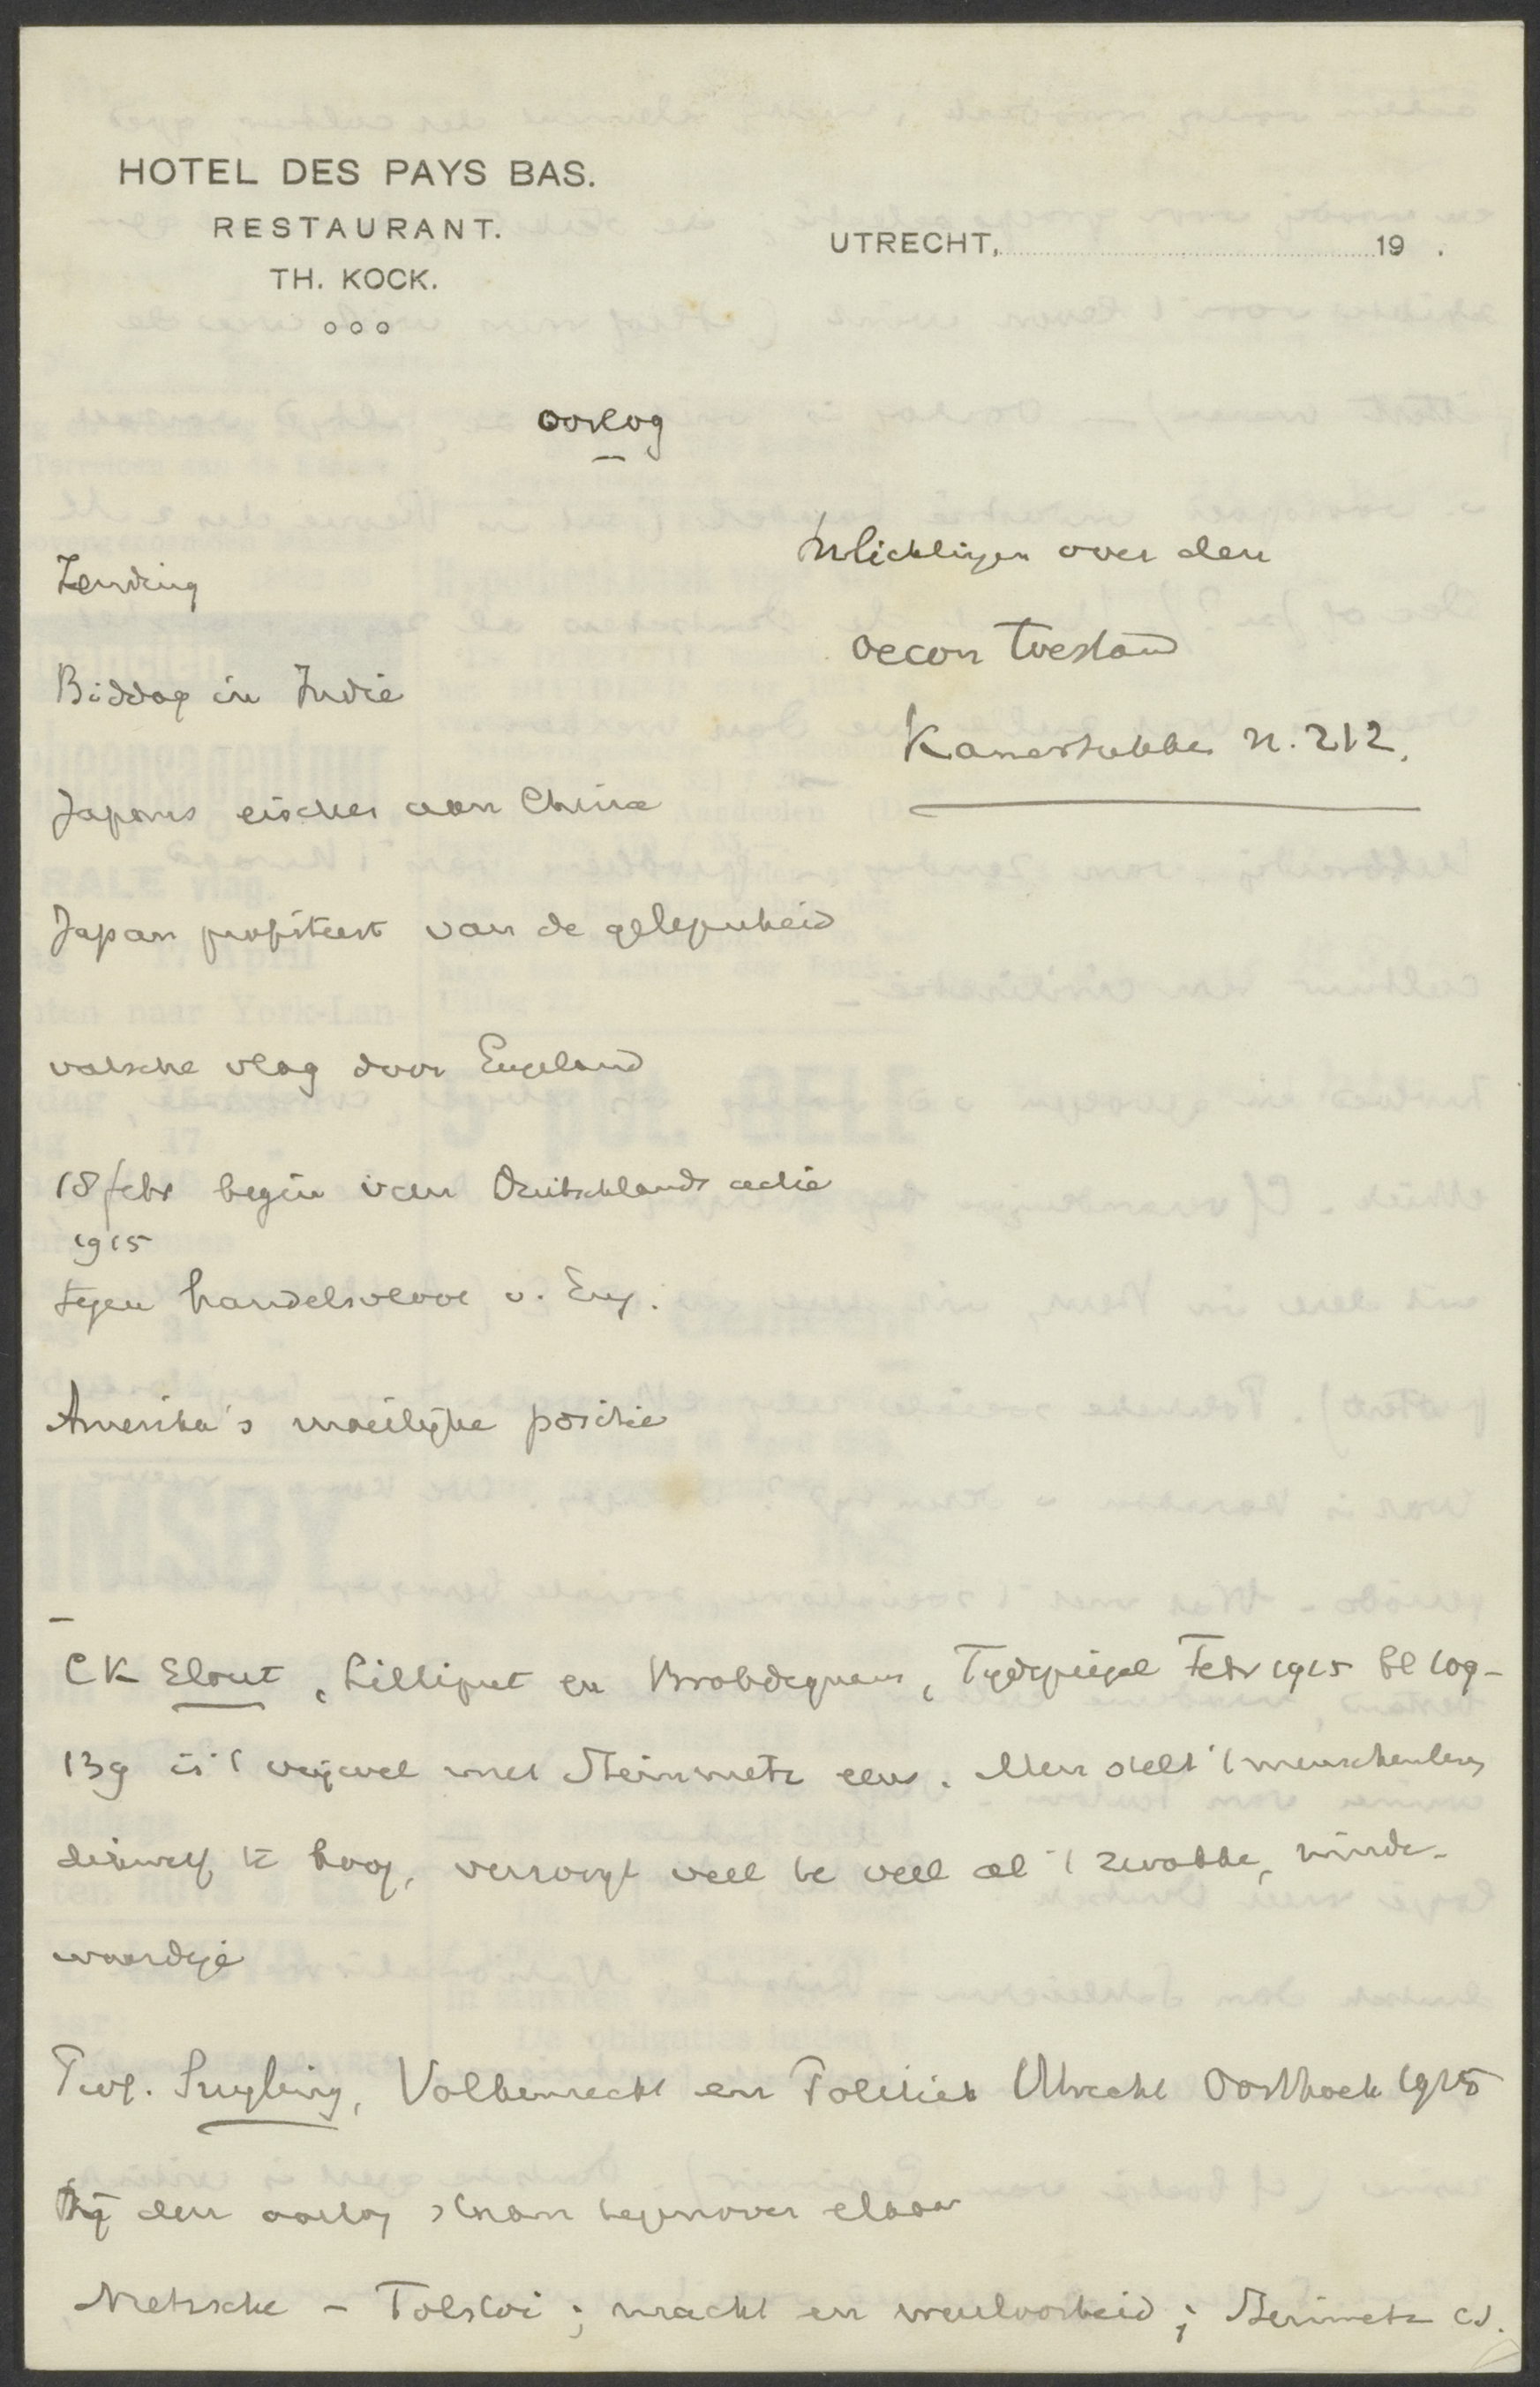 HOTEL DES PAYS BAS.
RESTAURANT.
TH. KOCK.
UTRECHT, 19 .
oorlog
Inlichtingen over den
oecon toestand
Kamerstukken n. 212.
Zending
Biddag in Indie
Japans eischen aan China
Japan profiteert van de gelegenheid
valsche vlag door Engeland
18 febr begin van Duitschlands actie
1915
tegen handelsvloot v. Eng.
Amerika's moeilijke positie
CK Elout, Lilliput en Brobdignac, Tijdspiegel Febr 1915 bl 109-
139 is 't vrijwel met Steinmetz eens. Men stelt 't menschenleven
te hoog, verzorgt veel te veel al 't zwakke, minder-
waardige
Prof. Suyling, Volkenrecht en Politiek Utrecht Oosthoek 1915
Bij den oorlog staan tegenover elkaar
Nietzsche - Tolstoi ; macht en weerloosheid ; Steinmetz cs.